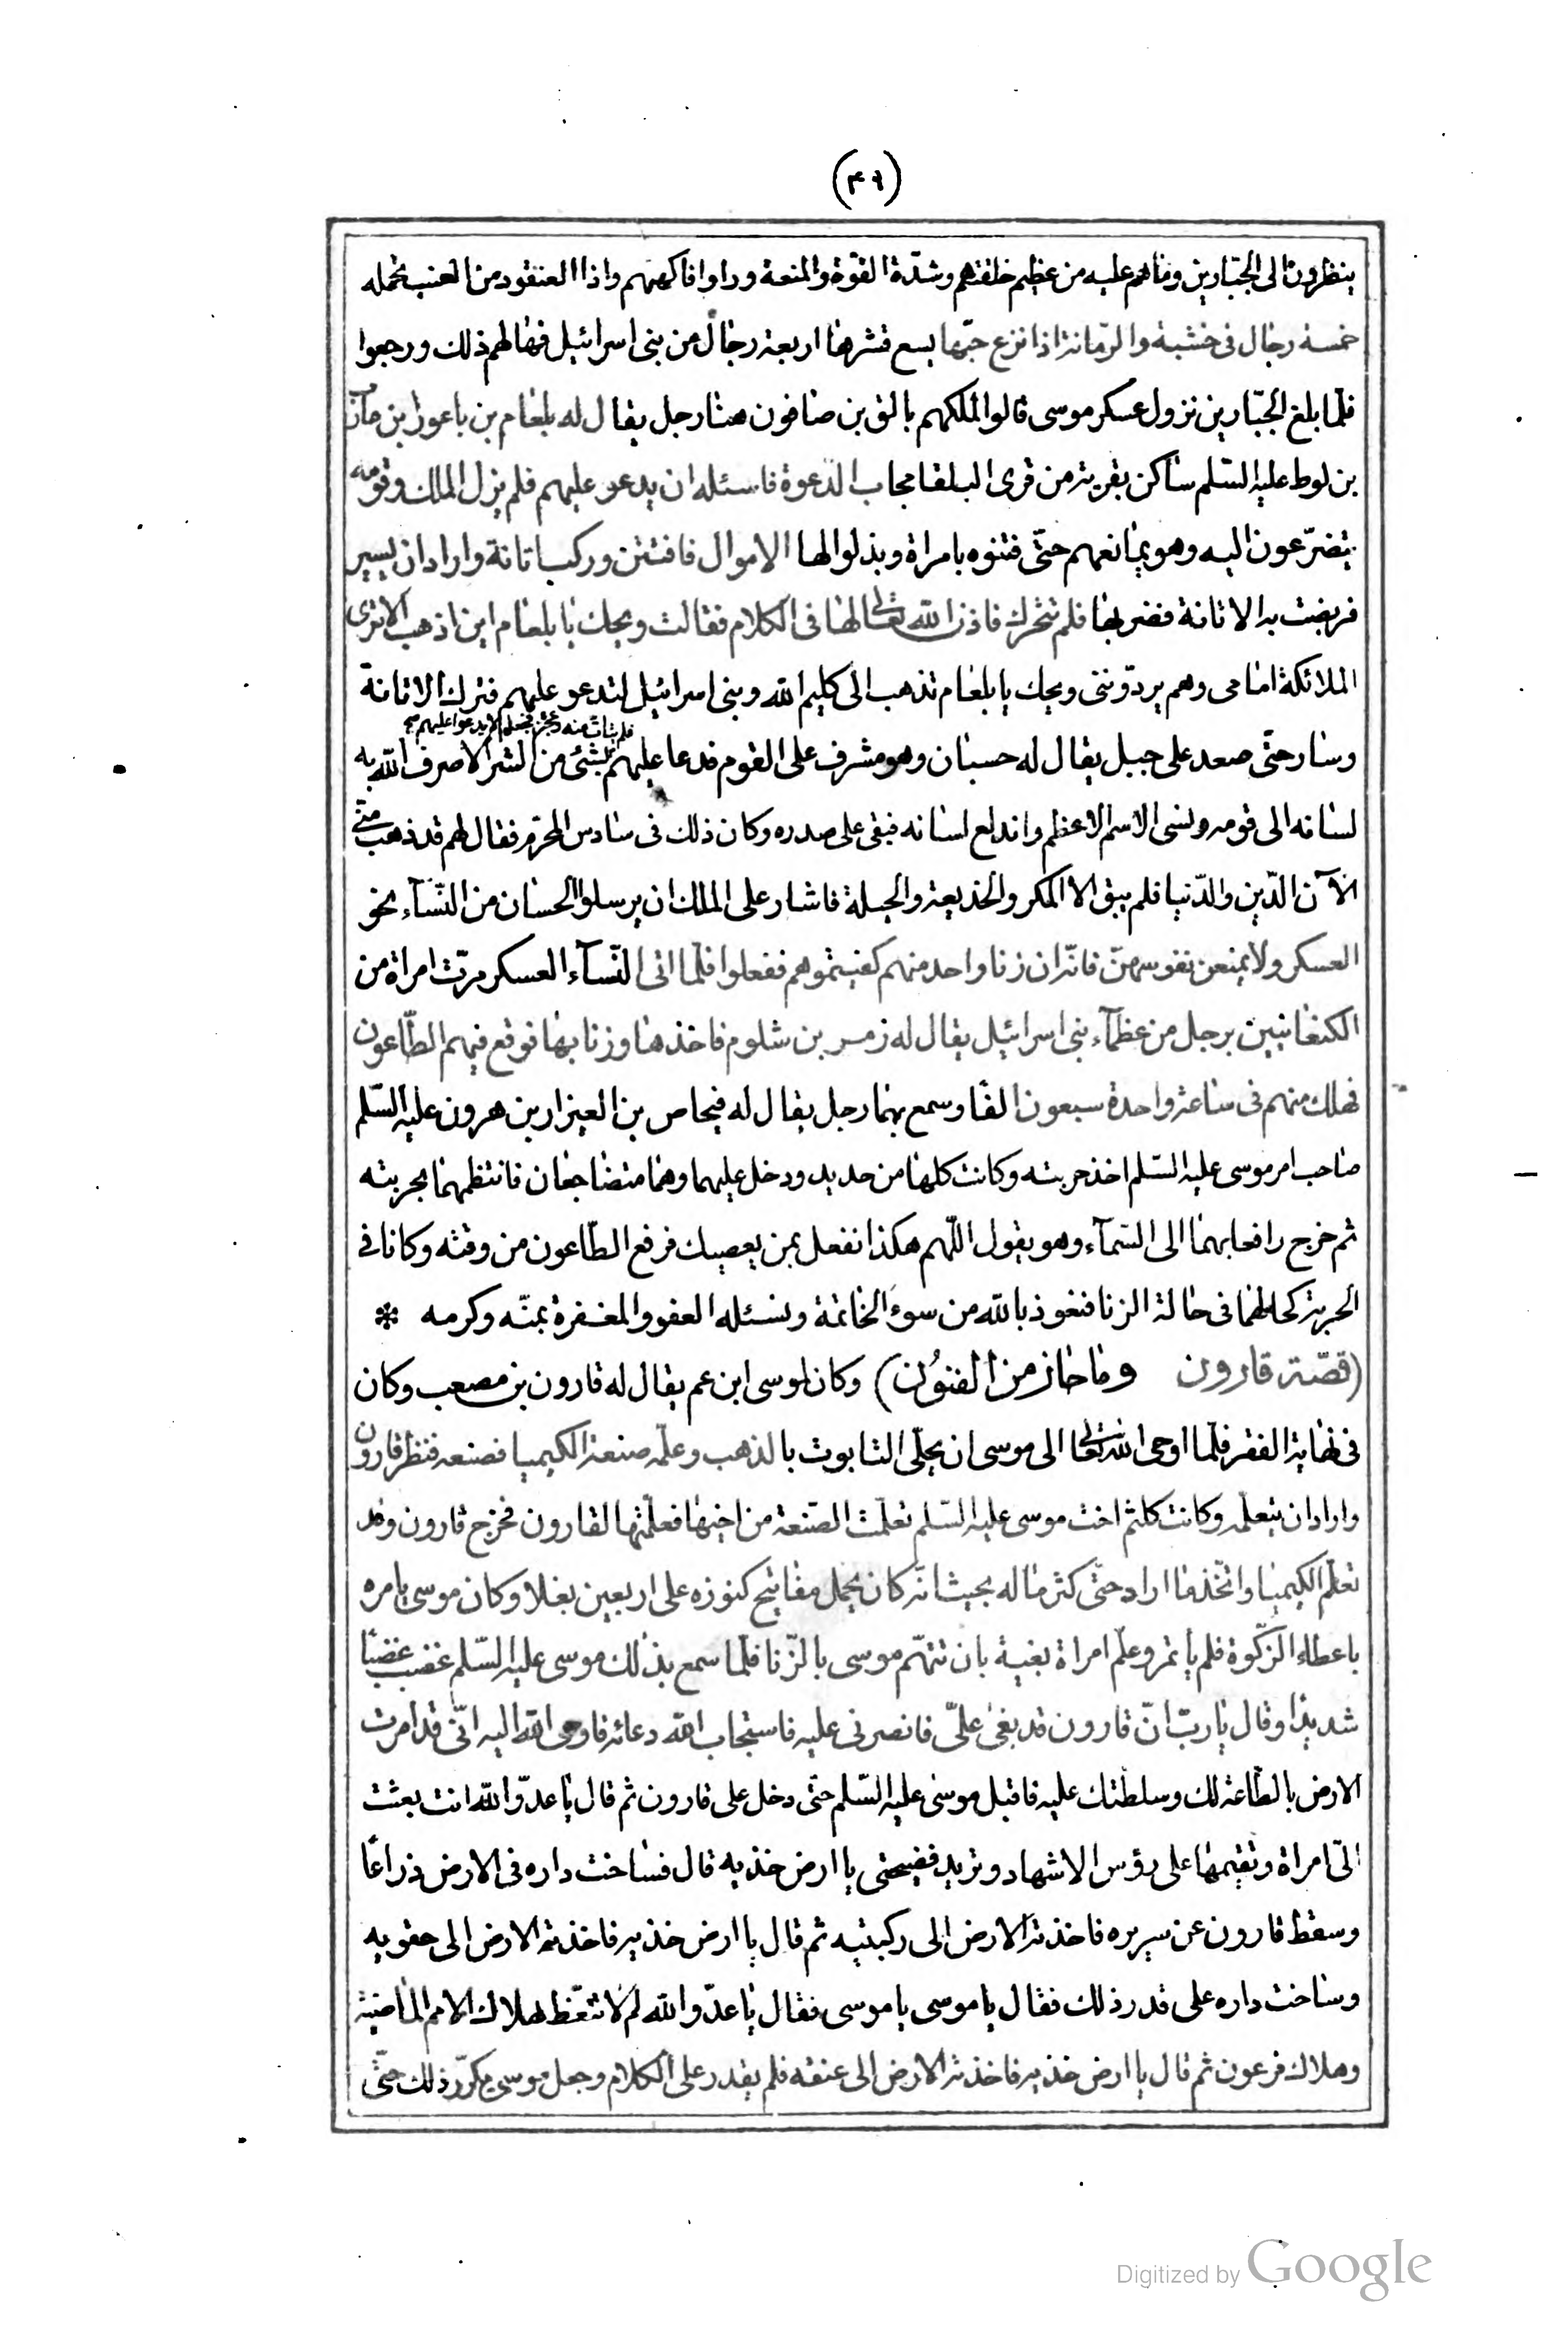 (٤٦)
ينظرون الى الجبّارين وما هم عليه من عظيم خلقتهم وشدّة القوّة والمنعة وراوا فاكهتهم واذا العنقود من العنب تحمله
خمسة رجال فى خشبة والرّمانة اذا نزع حبّها يسع قشرها اربعة رجال من بنى اسرائيل فهالهم ذلك ورجعوا
فلمّا بلغ الجبّارين نزول عسكر موسى قالوا لملكهم بالق بن صافون هنا رجل يقال له بلعام بن باعور بن مآن
بن لوط عليه السّلم ساكن بقرية من قرى البلقا مجاب الدّعوة فاسئله ان يدعو عليهم فلم يزل الملك وقومه
يتضرّعون اليه وهو يمانعهم حتّى فتنوه بامراة وبذلوا لها الاموال فافتتن وركب اتانة واراد ان يسير
فربضت به الاتانة فضربها فلم تتحرّك فاذن الله تعالى لها فى الكلام فقالت ويحك يا بلعام اين اذهب الا ترى
الملائكة امامى وهم يردّوننى ويحك يا بلعام تذهب الى كليم الله وبنى اسرائيل لتدعو عليهم فترك الاتانة
وسار حتّى صعد على جبل يقال له حسبان وهو مشرف على القوم فدعا عليهم بشئ من الشر الا صرف الله به
لسانه الى قومه ونسى الاسم الاعظم واندلع لسانه فبقى على صدره وكان ذلك فى سادس المحرّم فقال لهم قد ذهب منّى
الآن الدّين والدّنيا فلم يبق الا المكر والخديعة والحيلة فاشار على الملك ان يرسلوا الحسان من النّسآء نحو
العسكر ولا يمنعن نفوسهنّ فانّه ان زنا واحد منهم كفيتموهم ففعلوا فلمّا اتى النّسآء العسكر مرّت امراة من
الكنعانيين برجل من عظمآء بنى اسرائيل يقال له زمر بن شلوم فاخذها وزنا بها فوقع فيهم الطّاعون
فهلك منهم فى ساعة واحدة سبعون الفا وسمع بهما رجل يقال له فيحاص بن العيزار بن هرون عليه السّلم
صاحب امر موسى عليه السّلم اخذ حربته وكانت كلها من حديد ودخل عليهما وهما متضاجعان فانتظمهما بحربته
ثم خرج رافعا بهما الى السّمآء وهو يقول اللّهم هكذا نفعل بمن يعصيك فرفع الطّاعون من وقته وكانا فى
الحربة كحالهما فى حالة الزنا فنعوذ بالله من سوء الخاتمة ونسئله العفو والمغفرة بمنّه وكرمه *
(قصّة قارون وما حاز من الفنون) وكان لموسى ابن عم يقال له قارون بن مصعب وكان
فى نهاية الفقر فلمّا اوحى الله تعالى الى موسى ان يحلّى التابوت بالذهب وعلّمه صنعة الكيميا فصنعه فنظر قارون
واراد ان يتعلّمه وكانت كلثم اخت موسى عليه السّلم تعلّمت الصّنعة من اخيها فعلّمتها لقارون فخرج قارون وقد
تعلّم الكيميا واتّخذ ما اراد حتّى كثر ماله بحيث انّه كان يحمل مفاتيح كنوزه على اربعين بغلا وكان موسى يامره
باعطاء الزّكوة فلم ياتمر وعلّم امراة بغية بان تتهّم موسى بالزّنا فلمّا سمع بذلك موسى عليه السّلم غضب غضبًا
شديدًا وقال يا ربّ انّ قارون قد بغى علىّ فانصرنى عليه فاستجاب الله دعائه فاوحى الله اليه انّى قد امرت
الارض بالطّاعة لك وسلطتك عليه فاقبل موسى عليه السّلم حتّى دخل على قارون ثم قال يا عدوّ الله انت بعثت
الىّ امراة وتقيمها على رؤس الاشهاد وتريد فضيحتى يا ارض خذيه قال فساخت داره فى الارض ذراعًا
وسقط قارون عن سريره فاخذته الارض الى ركبتيه ثم قال يا ارض خذيه فاخذته الارض الى حقويه
وساخت داره على قدر ذلك فقال يا موسى يا موسى فقال يا عدوّ الله لم لا تتعّظ بهلاك الامم الماضية
وهلاك فرعون ثم قال يا ارض خذيه فاخذته الارض الى عنقه فلم يقدر على الكلام وجعل موسى يكرّر ذلك حتّى
Digitized by Google